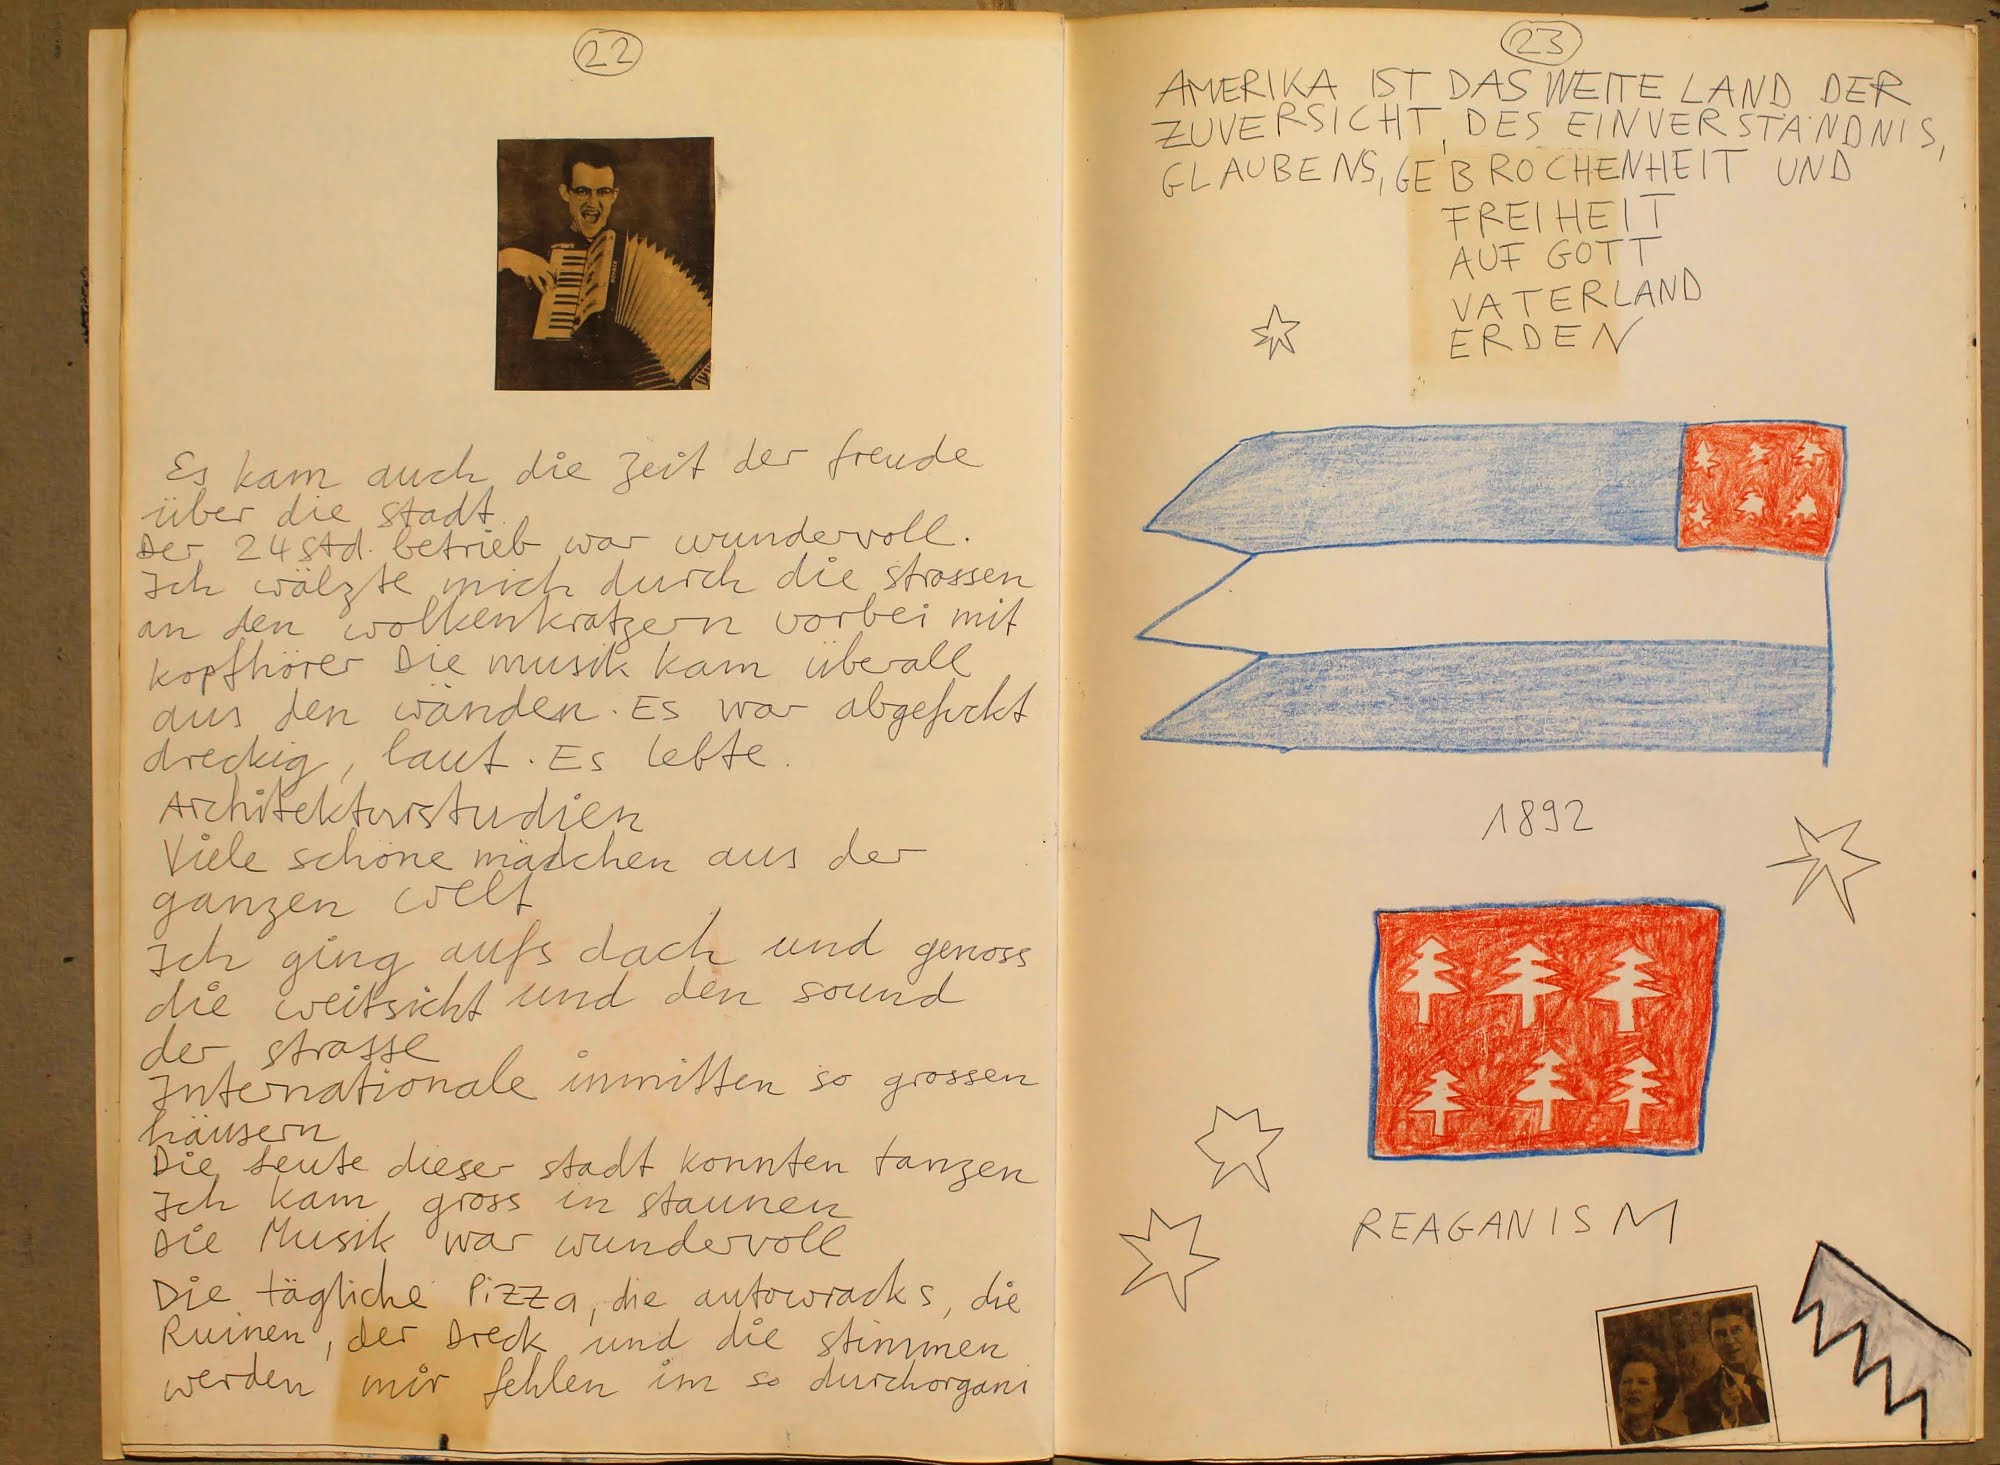 22
Es kam auch die Zeit der freude
über die stadt
Der 24 std. betrieb war wundervoll.
Ich wälzte mich durch die strassen
an den wolkenkratzern vorbei mit
kopfhörer Die musik kam überall
aus den wänden. Es war abgefuckt
dreckig, laut. Es lebte.
Architekturstudien
Viele schöne mädchen aus der
ganzen welt
Ich ging aufs dach und genoss
die weitsicht und den sound
der strasse
Internationale inmitten so grossen
häusern
Die leute dieser stadt konnten tanzen
Ich kam gross in staunen
Die Musik war wundervoll
Die tägliche Pizza, die autowracks, die
Ruinen, der Dreck und die stimmen
werden mir fehlen im so durchorgani
23
AMERIKA IST DAS WEITE LAND DER
ZUVERSICHT, DES EINVERSTÄNDNIS,
GLAUBENS, GEBROCHENHEIT UND
FREIHEIT
AUF GOTT
VATERLAND
ERDEN
1892
REAGANISM